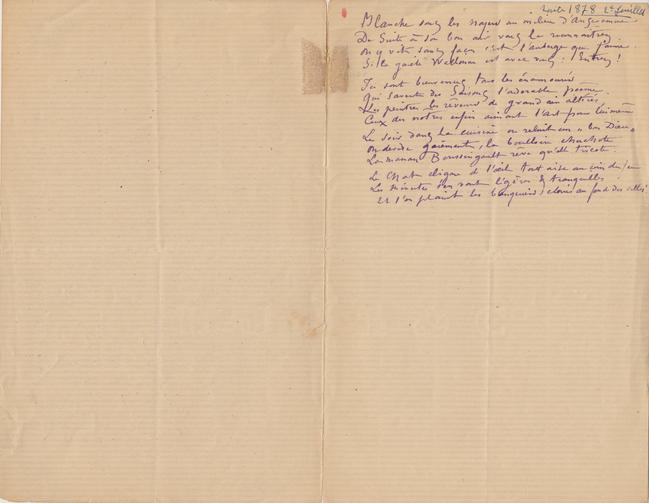 1878 2e feuillet
Blanche sous les noyers au milieu d'
De suite à son bon air vous la reconnaîtrez
On y vit sans façon c'est l'auberge que j'aime
Si la gaité Wellman est avec vous : Entrez !
Ici sont bienvenus tous les énamourés
Qui savent des Saisons l'adorable poème
Les peintres les rêveurs de grand air altérés
Ceux des nôtres enfin aimant l'art pour lui même
Le soir dans la cuisine où reluit un "bon Dieu"
On devise gaiement, la bouilloire chuchote
La maman Boussingault rêve qu'elle tricote
Le Chat cligne de l'œil tout aise au coin du feu
Les minutes s'en vont légères & tranquilles
Et l'on plaint les bourgeois cloués au fond des villes